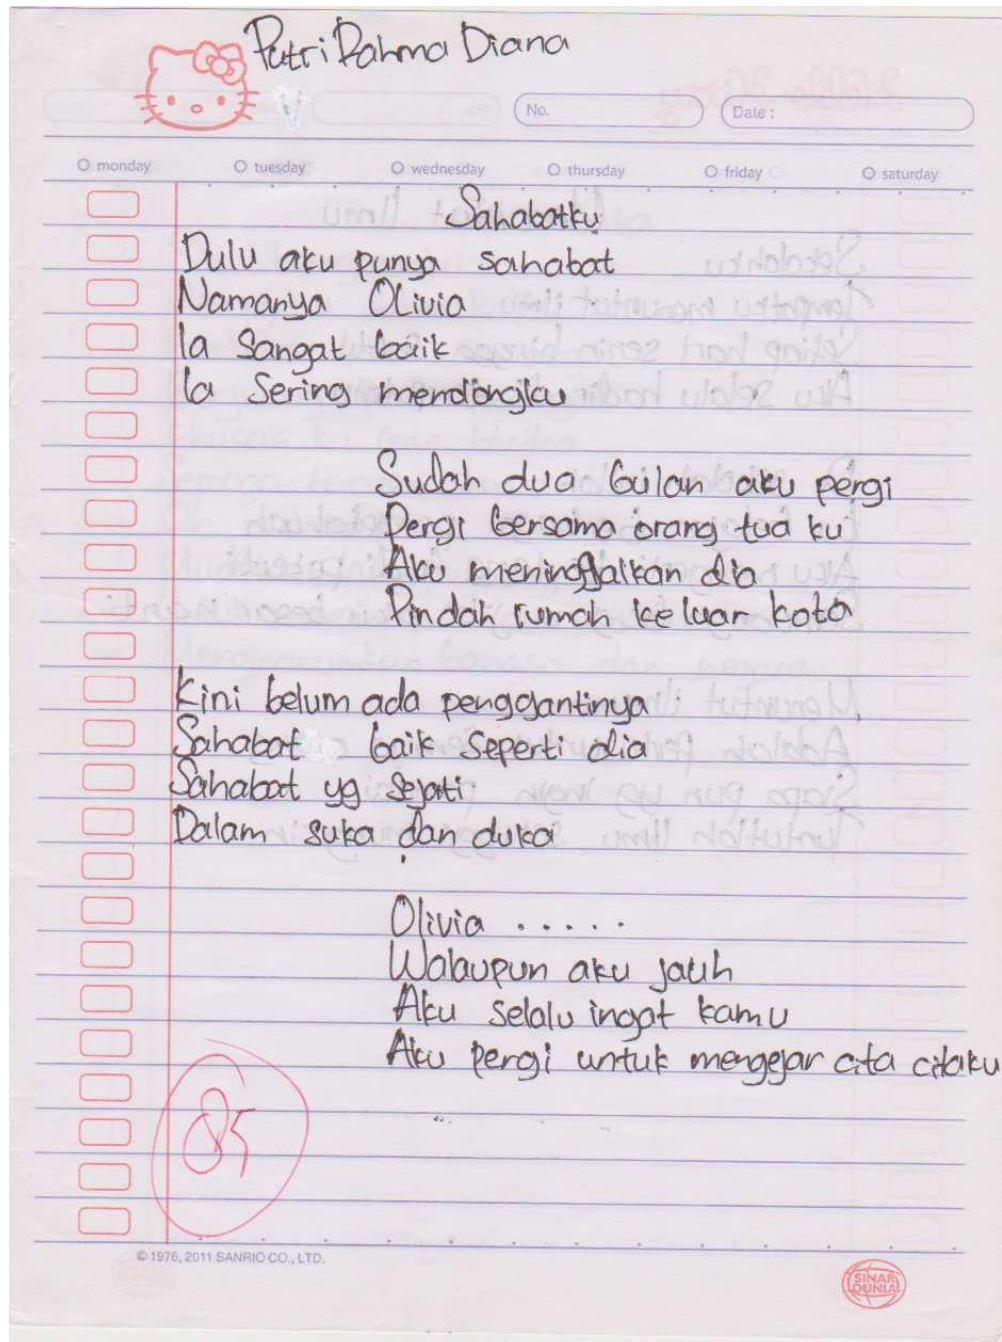 Putri Rahma Diana
No.
Date :
monday tuesday wednesday thursday friday saturday
Sahabatku
Dulu aku punya sahabat
Namanya Olivia
Ia Sangat baik
Ia Sering
Sudah dua bulan aku pergi
Pergi bersama orang tua ku
Aku meninggalkan dia
Pindah rumah ke luar kota
Kini belum ada penggantinya
Sahabat baik seperti dia
Sahabat yg sejati
Dalam suka dan duka
Olivia .....
Walaupun aku jauh
Aku selalu ingat kamu
Aku pergi untuk mengejar cita citaku
85
© 1976, 2011 SANRIO CO., LTD.
SINAR
DUNIA